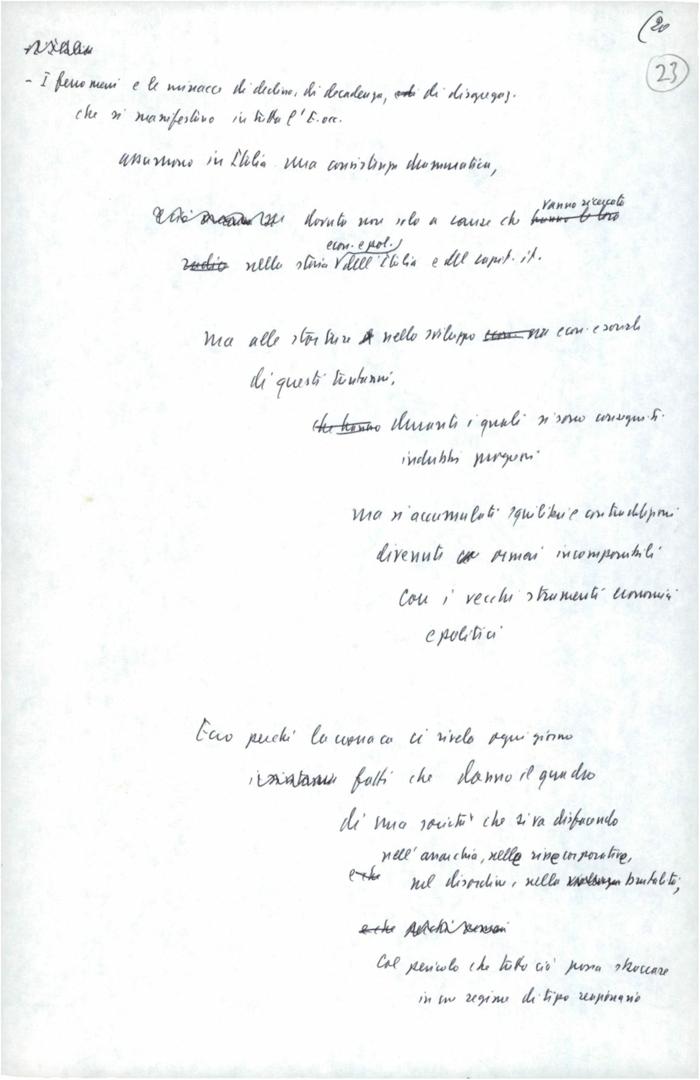 (20
23
- I fenomeni e le minacce di declino, di decadenza, di disgregaz.
che si manifestano in tutta l'E. occ.
assumono in Italia una consistenza drammatica,
vanno ricercate
dovuta non solo a cause che hanno le loro
econ. e pol.
radici nella storia dell'Italia e del capit. it.
ma alle storture nello sviluppo econ. e sociale
di questi trent'anni,
che hanno durante i quali si sono conseguiti
indubbi progressi
ma si accumulati squilibri e contraddizioni
divenuti ormai incomponibili
con i vecchi strumenti economici
e politici
Ecco perché la cronaca ci rivela ogni giorno
fatti che danno il quadro
di una società che si va disfacendo
nell'anarchia, nelle risse corporative,
e che nel disordine, nella violenza brutalità,
e che
col pericolo che tutto ciò possa sboccare
in un regime di tipo reazionario